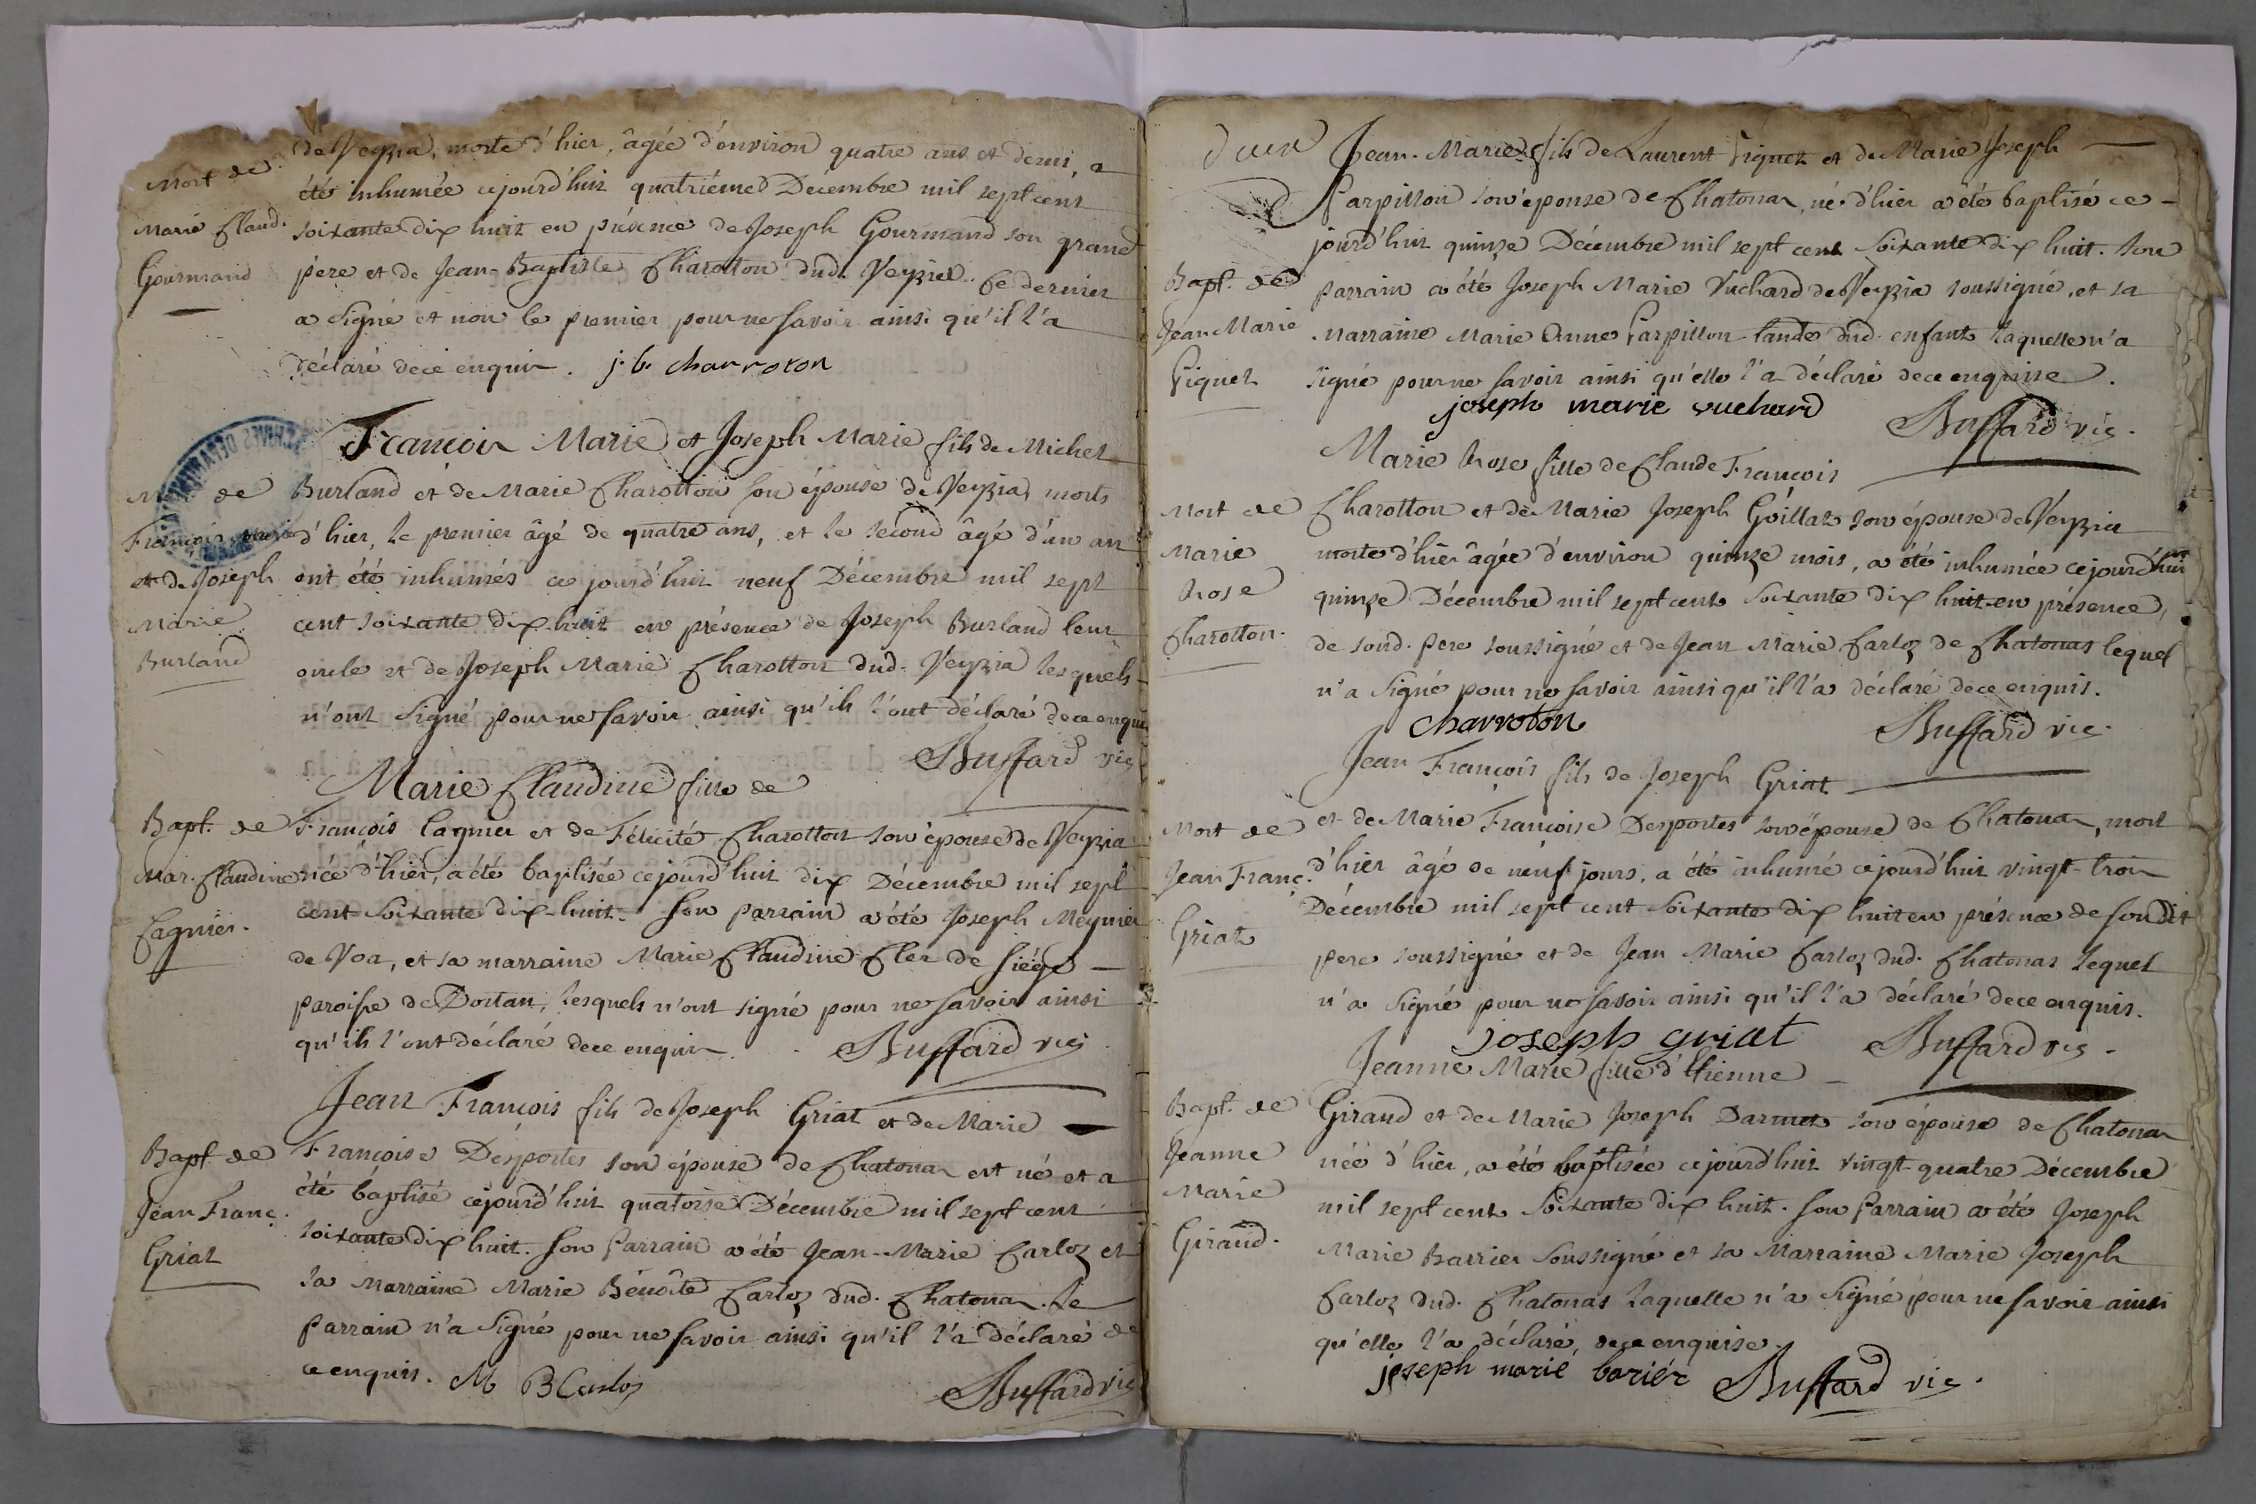 Mort de
Marie Claud.
Gourmand
de Veyzia, morte d'hier, âgée d'environ quatre ans et demi, a
été inhumée cejourd'huit quatriéme Décembre mil sept cent
soixante dix huit en présence de Joseph Gourmand son grand
pere et de Jean-Baptiste Charotton dud. Veyzia. Ce dernier
a signé et non le premier pour ne savoir ainsi qu'il l'a
déclaré de ce enquis. j. b. charroton
de
François Marie
et de Joseph
Marie
Burland
François Marie et Joseph Marie fils de Michel
Burland et de Marie Charotton son épouse de Veyzia, morts
d'hier, le premier âgé de quatre ans, et le second âgé d'un an
ont été inhumés ce jourd'huit neuf Décembre mil sept
cent soixante dix huit en présence de Joseph Burland leur
oncle et de Joseph Marie Charotton dud. Veyzia lesquels
n'ont signé pour ne savoir ainsi qu'ils l'ont déclaré de ce enquis
Buffard vic
Bapt. de
Mar. Claudine
Cagnier.
Marie Claudine fille de
François Cagnier et de Félicité Charotton son épouse de Veyzia
née d'hier, a été baptisée cejourd'huit dix Décembre mil sept
cent soixante dix-huit. Son parrain a été Joseph Meynier
de Voa, et sa marraine Marie Claudine Cler de Siége
paroisse de Dortan, lesquels n'ont signé pour ne savoir ainsi
qu'ils l'ont déclaré de ce enquis. Buffard vic
Bapt. de
Jean Franç.
Griat
Jean François fils de Joseph Griat et de Marie
Françoise Desportes son épouse de Chatonas est né et a
été baptisé cejourd'huit quatorse Décembre mil sept cent
soixante dix huit. Son Parrain a été Jean-Marie Carloz et
sa Marraine Marie Bénoîte Carloz dud. Chatonas. Le
Parrain n'a signé pour ne savoir ainsi qu'il l'a déclaré de
ce enquis. M B Carloz Buffard vic
deux
Bapt. de
Jean Marie
Piquet
Jean-Marie fils de Laurent Piquet et de Marie Joseph
Parpillon son épouse de Chatonas, né d'hier a été baptisé ce
jourd'huit quinze Décembre mil sept cent soixante dix huit. Son
parrain a été Joseph Marie Vuchard de Veyzia soussigné, et sa
Marraine Marie Anne Parpillon tante dud. enfant laquelle n'a
signé pour ne savoir ainsi qu'elle l'a déclaré de ce enquise.
joseph marie vuchard Buffard vic.
Mort de
Marie
Rose
Charotton.
Marie Rose fille de Claude François
Charotton et de Marie Joseph Goillat son épouse de Veyzia
morte d'hier âgée d'environ quinze mois, a été inhumée cejourd'huit
quinze Décembre mil sept cent soixante dix huit en présence,
de sond. pere soussigné et de Jean Marie Carloz de Chatonas lequel
n'a signé pour ne savoir ainsi qu'il l'a déclaré de ce enquis.
charroton Buffard vic.
Mort de
Jean Franç.
Griat
Jean François fils de Joseph Griat
et de Marie Françoise Desportes son épouse de Chatonas, mort
d'hier âgé de neuf jours, a été inhumé cejourd'huit vingt-trois
Décembre mil sept cent soixante dix huit en présence de sondit
pere soussigné et de Jean Marie Carloz dud. Chatonas lequel
n'a signé pour ne savoir ainsi qu'il l'a déclaré de ce enquis.
joseph griat Buffard vic.
Bapt. de
Jeanne
Marie
Giraud.
Jeanne Marie fille d'Etienne
Giraud et de Marie Joseph Darmet son épouse de Chatonas
née d'hier, a été baptisée cejourd'huit vingt-quatre Décembre
mil sept cent soixante dix huit. Son Parrain a été Joseph
Marie Barrier soussigné et sa Marraine Marie Joseph
Carloz dud. Chatonas laquelle n'a signé pour ne savoir ainsi
qu'elle l'a déclaré, de ce enquise.
joseph marié bariér Buffard vic.